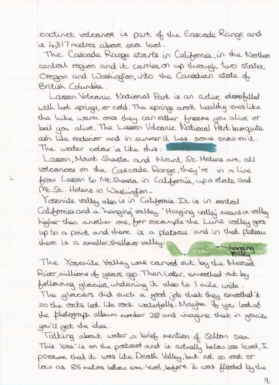 extinct volcanoes is part of the Cascade Range and
is 4317 metres above sea level.
The Cascade Range starts in California, in the Northern
central region and it carries on up through two states
Oregon and Washington, into the Canadian state of
British Columbia.
Lassen Volcanic National Park is an active, filled
with hot springs, or cold. The springs aren't exactly ones like
the luke warm ones they can either freeze you alive or
boil you alive. The Lassen Volcanic National Park
ash like exterior and in summer it has some snow on it.
The water color is like this:
Lassen, Mount Shasta and Mount St. Helens are all
volcanoes on the Cascade Range, they're in a line
from Lassen to Mt. Shasta, in California, up a state and
Mt. St. Helens is Washington.
Yosemite valley also is in California. It is in central
California and a 'hanging valley'. 'Hanging valley' means a valley
higher than another one, for example the Luna valley goes
up to a point and there is a plateau and in that plateau
there is a smaller, shallower valley.
hanging
valley
The Yosemite Valley was carved out by the Merced
River millions of years ago. Then later, smoothed out by
following glaciers, widening it also to 1 mile wide.
The glaciers did such a good job that they smoothed it
so the rocks look like rock waterfalls. Maybe if you look at
the photograph album number 28 and imagine that in granite
you'll get the idea.
Talking about water a brief mention of Salton Sea.
This 'sea' is on the postcard and is actually below sea level, I
presume that it was like Death Valley, but not as cold or
low as 86 metres below sea level, before it was flooded by the